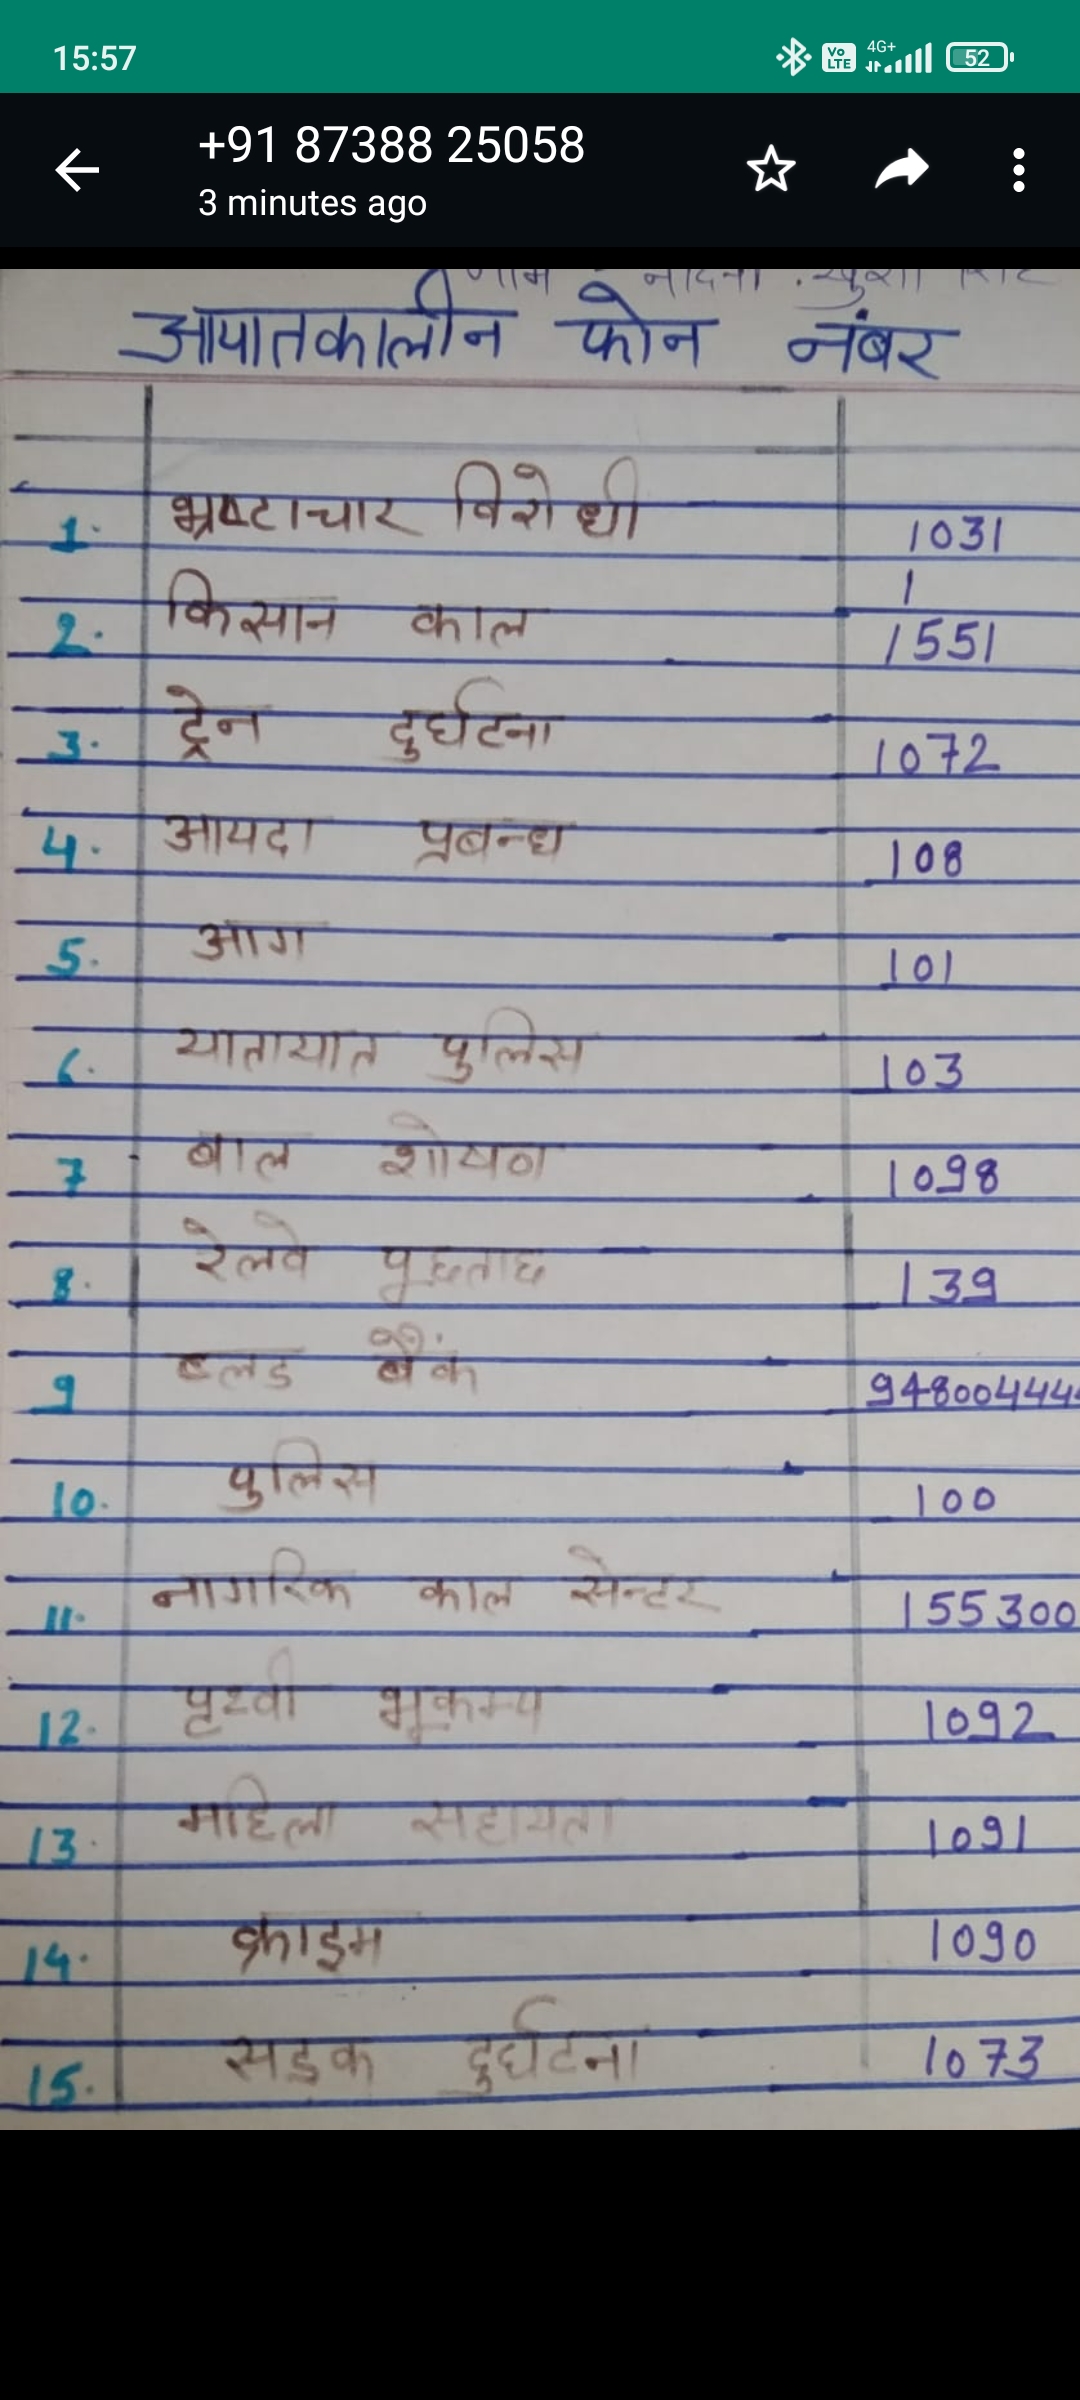 15:57
Vo LTE 4G+ 52
+91 87388 25058
3 minutes ago
नाम
आपातकालीन फोन नंबर
1. भ्रष्टाचार विरोधी 1031
1
2. किसान काल 1551
3. ट्रेन दुर्घटना 1072
4. आपदा प्रबन्ध 108
5. आग 101
6. यातायात पुलिस 103
7 बाल शोषण 1098
8. रेलवे पूछताछ 139
9 ब्लड बैंक 948004444
10. पुलिस 100
11. नागरिक काल सेन्टर 155300
12. पृथ्वी भूकम्प 1092
13. महिला सहायता 1091
14. क्राइम 1090
15. सड़क दुर्घटना 1073